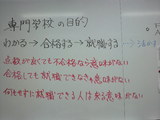 専門学校の目的
わかる→合格する→就職する
点数が良くても不合格なら意味がない
合格しても就職できなきゃ意味がない
何もせずに就職できる人は来る意味がない